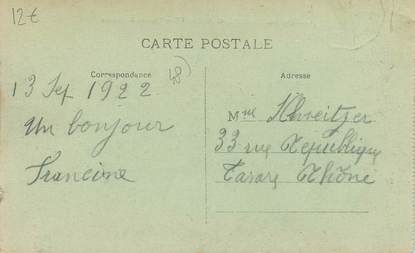 12€
CARTE POSTALE
Correspondance
48
Adresse
13 Sep 1922
Un bonjour
Francine
Mme Schveitzer
33 rue République
Tarare Rhône